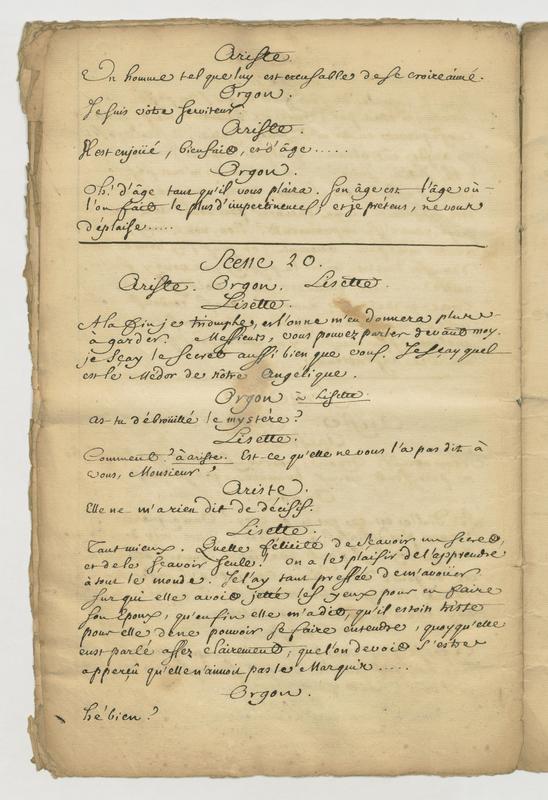 Ariste.
Un homme tel que luy est excusable de se croire aimé.
Orgon.
Je suis votre serviteur.
Ariste.
Il est enjoüé, bienfait, et d'âge.....
Orgon.
Oh! d'âge tant qu'il vous plaira. son âge est l'âge où
l'on fait le plus d'impertinences; et je prétens, ne vous
déplaise.....
Scene 20.
Ariste. Orgon. Lisette.
Lisette.
A la fin je triomphe, et l'on ne m'en donnera plus
à garder. Messieurs, vous pouvez parler devant moy.
je sçay le secret aussi bien que vous. Je sçay quel
est le Médor de notre Angelique.
Orgon à Lisette.
as-tu débrouillé le mystére?
Lisette.
Comment? à ariste. Est-ce qu'elle ne vous l'a pas dit à
vous, Monsieur?
Ariste.
Elle ne m'a rien dit de décisif.
Lisette.
Tant mieux. Quelle félicité de sçavoir un secret,
et de le sçavoir seule! on a le plaisir de l'apprendre
à tout le monde. Je l'ay tant pressée de m'avoüer
sur qui elle avoit jetté les yeux pour en faire
son Epoux, qu'enfin elle m'a dit, qu'il estoit triste
pour elle de ne pouvoir se faire entendre, quoy qu'elle
eust parlé assez clairement; que l'on devoit s'estre
apperçû qu'elle n'aimoit pas le Marquis.....
Orgon.
hé bien?